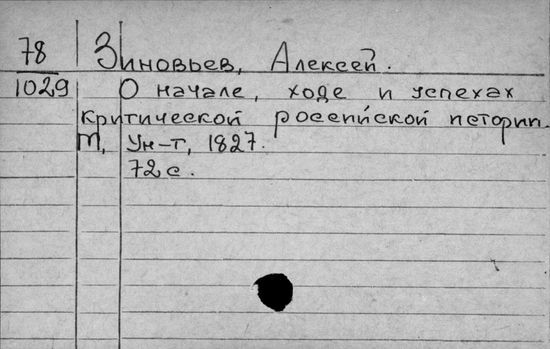 78 Зиновьев, Алексей.
1029 О начале, ходе и успехах
критической российской истории.
М, Ун-т, 1827.
72 с.